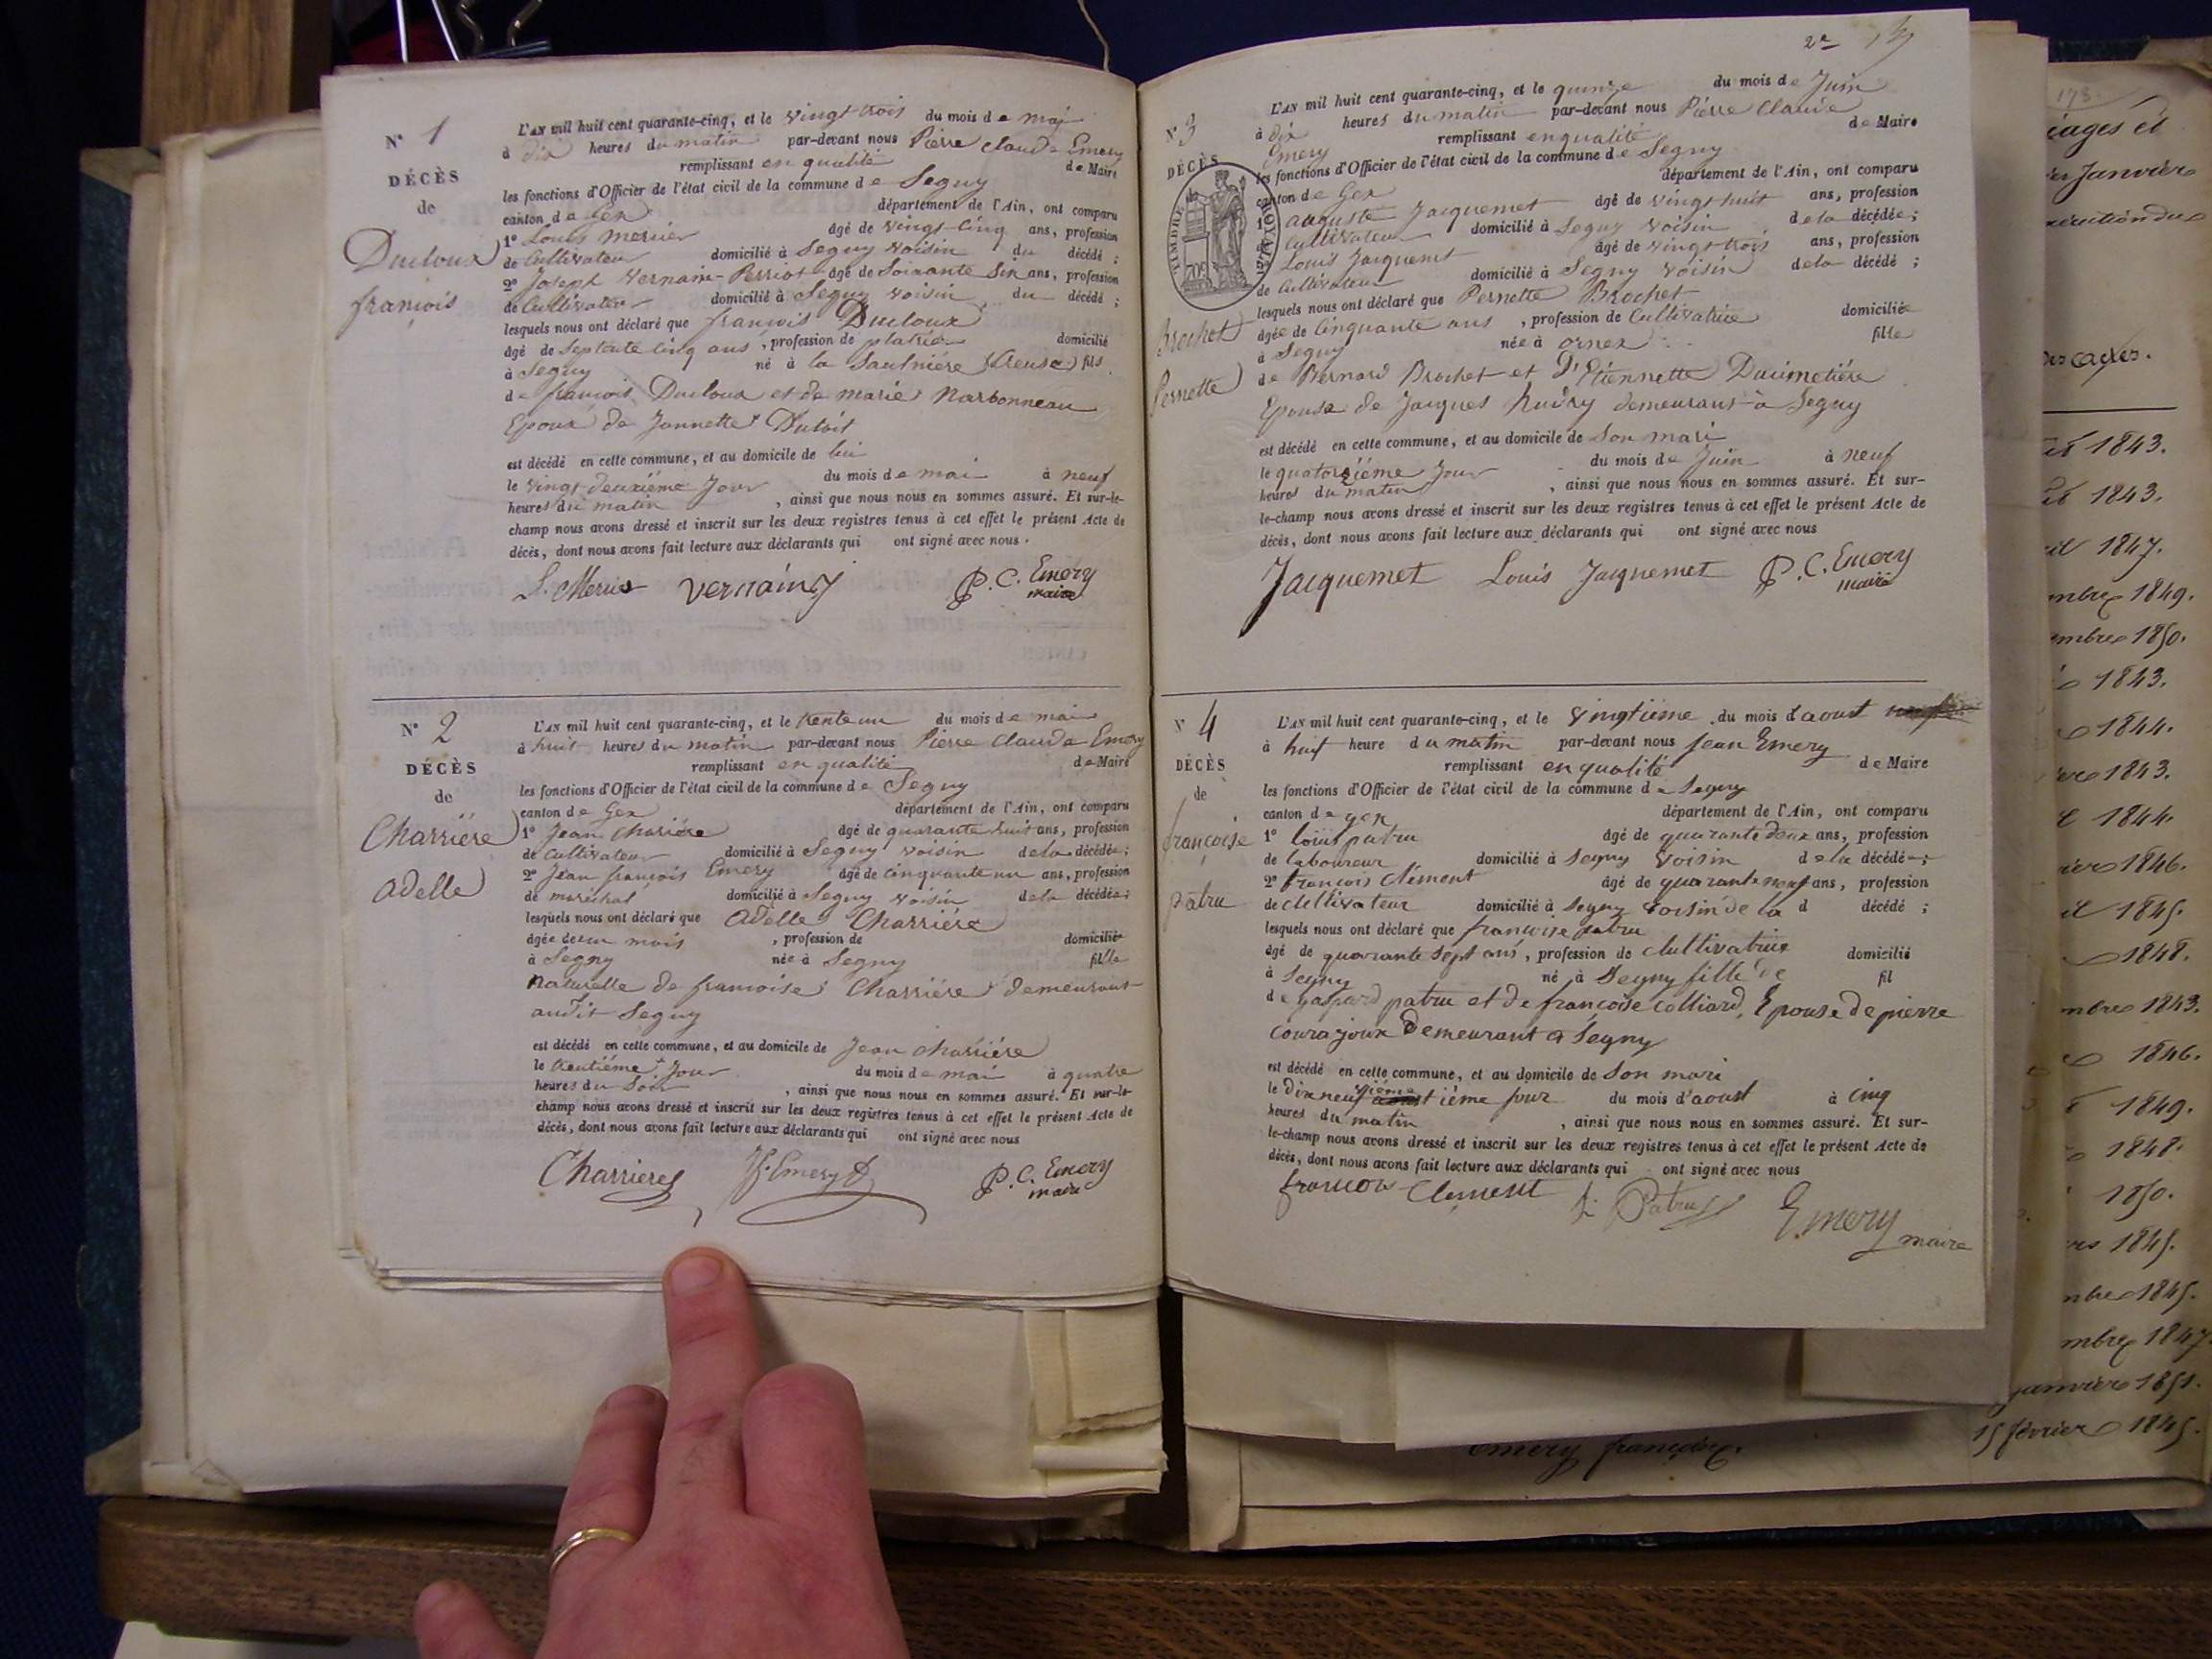 N° 1
DÉCÈS
de
Ducloux
françois
L'AN mil huit cent quarante-cinq, et le vingt trois du mois de mai
à dix heures du matin par-devant nous Pierre Claude Emery
remplissant en qualité de Maire
les fonctions d'Officier de l'état civil de la commune de Segny
canton de Gex département de l'Ain, ont comparu
1° Louis mérier âgé de vingt cinq ans, profession
de Cultivateur domicilié à Segny voisin du décédé ;
2° Joseph Vernain-Perriot âgé de Soixante Six ans, profession
de Cultivateur domicilié à Segny voisin du décédé ;
lesquels nous ont déclaré que françois Ducloux
âgé de Septente Cinq ans, profession de platrier domicilié
à Segny né à la Saulnière (Creuse) fils
de françois Ducloux et de marie Narbonneau
Epoux de Jannette Dutoit
est décédé en cette commune, et au domicile de lui
le vingt deuxième Jour du mois de mai à neuf
heures du matin, ainsi que nous nous en sommes assuré. Et sur-le-
champ nous avons dressé et inscrit sur les deux registres tenus à cet effet le présent Acte de
décès, dont nous avons fait lecture aux déclarants qui ont signé avec nous.
L. Merier Vernain J P. C. Emery
maire
N° 2
DÉCÈS
de
Charrière
Adelle
L'AN mil huit cent quarante-cinq, et le trente un du mois de mai
à huit heures du matin par-devant nous Pierre Claude Emery
remplissant en qualité de Maire
les fonctions d'Officier de l'état civil de la commune de Segny
canton de Gex département de l'Ain, ont comparu
1° Jean Charière âgé de quarante huit ans, profession
de Cultivateur domicilié à Segny voisin de la décédée ;
2° Jean françois Emery âgé de cinquante un ans, profession
de maréchal domicilié à Segny voisin de la décédée ;
lesquels nous ont déclaré que Adelle Charrière
âgée de un mois, profession de domiciliée
à Segny née à Segny fille
naturelle de françoise Charrière demeurant
audit Segny
est décédé en cette commune, et au domicile de Jean Charrière
le trentième Jour du mois de mai à quatre
heures du Soir, ainsi que nous nous en sommes assuré. Et sur-le-
champ nous avons dressé et inscrit sur les deux registres tenus à cet effet le présent Acte de
décès, dont nous avons fait lecture aux déclarants qui ont signé avec nous
Charrieres Emery P. C. Emery
maire
2e
N° 3
DÉCÈS
TIMBRE ROYAL
70c
Brochet
Pernette
L'AN mil huit cent quarante-cinq, et le quinze du mois de Juin
à dix heures du matin par-devant nous Pierre Claude
Emery remplissant en qualité de Maire
les fonctions d'Officier de l'état civil de la commune de Segny
canton de Gex département de l'Ain, ont comparu
1° auguste Jacquemet âgé de vingt huit ans, profession
de Cultivateur domicilié à Segny voisin de la décédée ;
Louis Jacquemet âgé de vingt trois ans, profession
de Cultivateur domicilié à Segny voisin de la décédé ;
lesquels nous ont déclaré que Pernette Brochet
âgée de Cinquante ans, profession de Cultivatrice domiciliée
à Segny née à Ornex fille
de Bernard Brochet et d'Etiennette Ducimetière
Epouse de Jacques hudry demeurant à Segny
est décédé en cette commune, et au domicile de Son mari
le quatorzième Jour du mois de Juin à neuf
heures du matin, ainsi que nous nous en sommes assuré. Et sur-
le-champ nous avons dressé et inscrit sur les deux registres tenus à cet effet le présent Acte de
décès, dont nous avons fait lecture aux déclarants qui ont signé avec nous
Jacquemet Louis Jacquemet P. C. Emery
maire
N° 4
DÉCÈS
de
françoise
patru
L'AN mil huit cent quarante-cinq, et le vingtième du mois d'aoust
à huit heure du matin par-devant nous Jean Emery
remplissant en qualité de Maire
les fonctions d'Officier de l'état civil de la commune de Segny
canton de gex département de l'Ain, ont comparu
1° louis patru âgé de quarante deux ans, profession
de laboureur domicilié à Segny voisin de la décédée ;
2° françois Clément âgé de quarante neuf ans, profession
de clultivateur domicilié à Segny voisin de la d décédé ;
lesquels nous ont déclaré que françoise patru
âgé de quarante sept ans, profession de clultivatrice domicilié
à Segny né à Segny fille de fil
de gaspard patru et de françoise colliard, Epouse de pierre
courajoux demeurant a Segny
est décédé en cette commune, et au domicile de Son mari
le Dixneuvième jour du mois d'aoust à cinq
heures du matin, ainsi que nous nous en sommes assuré. Et sur-
le-champ nous avons dressé et inscrit sur les deux registres tenus à cet effet le présent Acte de
décès, dont nous avons fait lecture aux déclarants qui ont signé avec nous
francois Clement L. Patru Emery maire
173
Janvier
1843.
1843.
1847.
1849.
1850.
1843.
1844.
1843.
1844.
1846.
1845.
1848.
1843.
1846.
1849.
1848.
1850.
1845.
1845.
1847
janvier 1851.
15 février 1845.
emery françois.